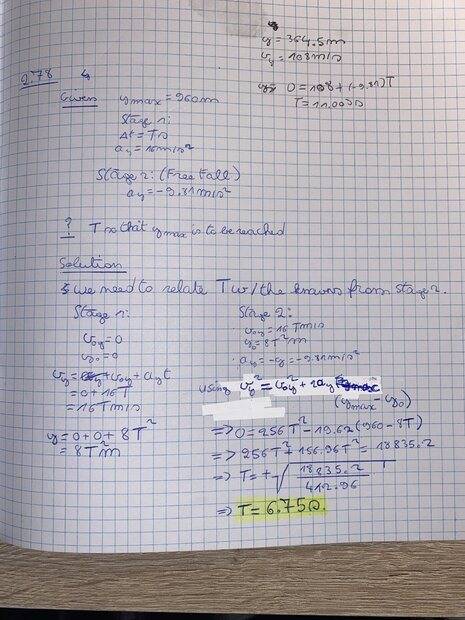 y = 364.5m
vy = 108m/s
0 = 108 + (-9.81)T
T = 11.009s
2.78
Given ymax = 960m
Stage 1:
Δt = Ts
ay = 16m/s²
Stage 2: (Free Fall)
ay = -9.81m/s²
? T so that ymax is to be reached
Solution
we need to relate T w/ the knowns from stage 2.
Stage 1:
v0y = 0
y0 = 0
vy = v0y + ayt
= 0 + 16T
= 16T m/s
y = 0 + 0 + 8T²
= 8T²m
Stage 2:
v0y = 16 T m/s
y0 = 8T²m
ay = -g = -9.81m/s²
using vy² = v0y² + 2ay
(ymax - y0)
=> 0 = 256T² - 19.62(960 - 8T²)
=> 256T² + 156.96T² = 18835.2
=> T = +√ 18835.2
412.96
=> T = 6.75s.